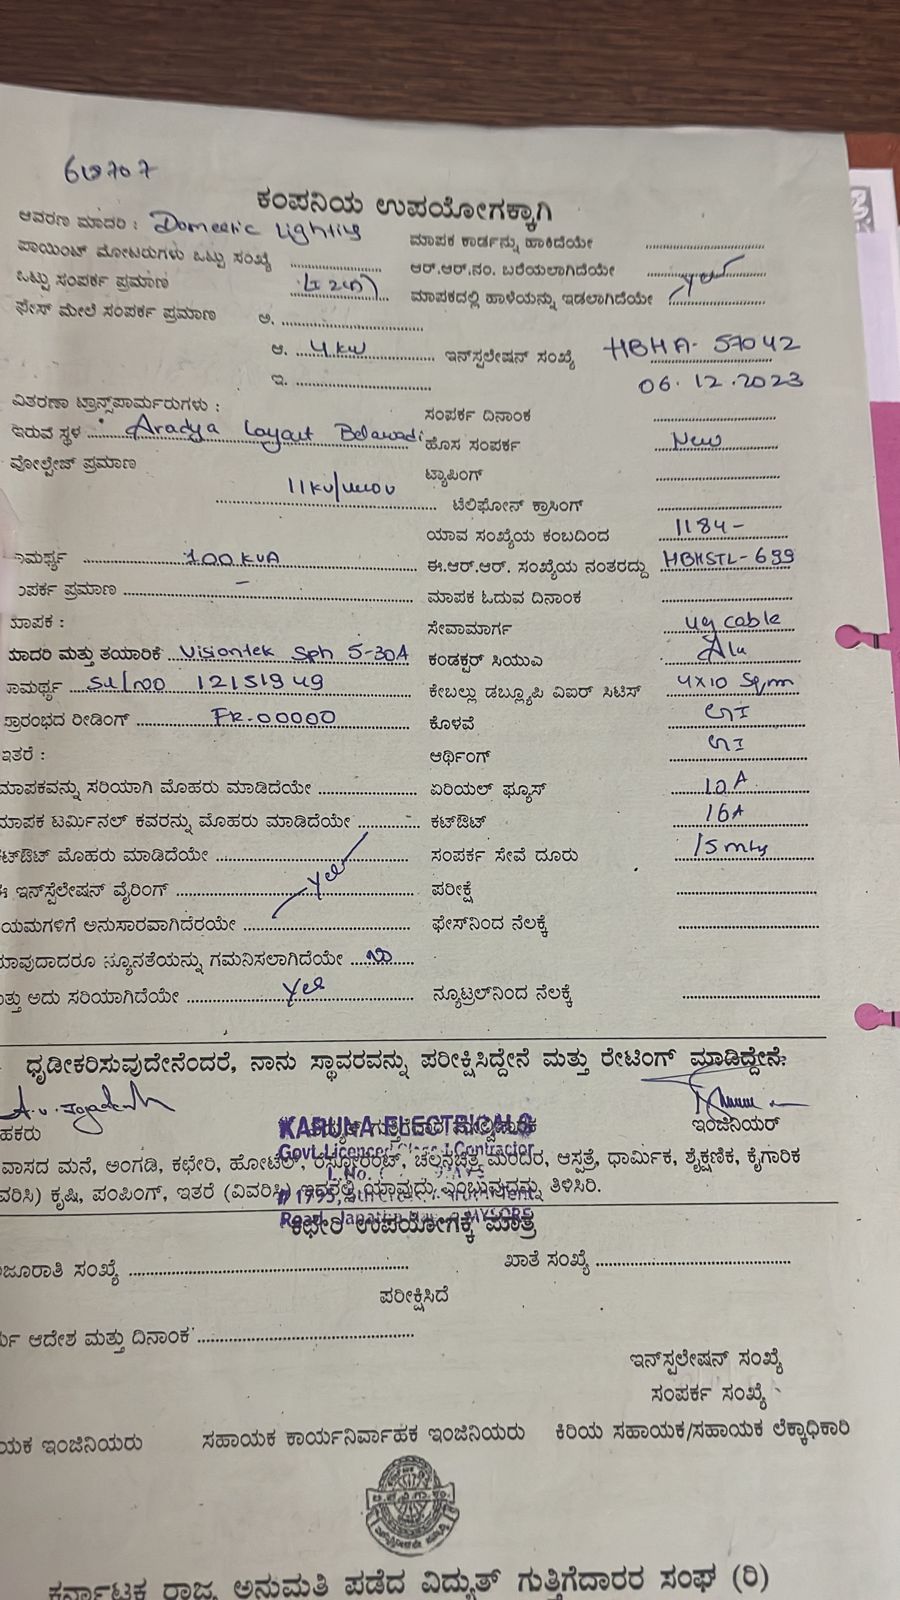 ಕಂಪನಿಯ ಉಪಯೋಗಕ್ಕಾಗಿ
ಆವರಣ ಮಾದರಿ : Domestic Lighting
ಪಾಯಿಂಟ್ ಮೋಟರುಗಳು ಒಟ್ಟು ಸಂಖ್ಯೆ
ಒಟ್ಟು ಸಂಪರ್ಕ ಪ್ರಮಾಣ
ಫೇಸ್ ಮೇಲೆ ಸಂಪರ್ಕ ಪ್ರಮಾಣ ಅ.
ಆ. 4 KW
ಇ.
ಮಾಪಕ ಕಾರ್ಡನ್ನು ಹಾಕಿದೆಯೇ
ಆರ್.ಆರ್.ನಂ. ಬರೆಯಲಾಗಿದೆಯೇ
ಮಾಪಕದಲ್ಲಿ ಹಾಳೆಯನ್ನು ಇಡಲಾಗಿದೆಯೇ yes
ಇನ್‌ಸ್ಪಲೇಷನ್ ಸಂಖ್ಯೆ HBHA- 57042
06.12.2023
ವಿತರಣಾ ಟ್ರಾನ್ಸ್‌ಫಾರ್ಮರುಗಳು :
ಇರುವ ಸ್ಥಳ Aradya Layout Belawadi
ವೋಲ್ಟೇಜ್ ಪ್ರಮಾಣ
11KV/440V
ಾಮರ್ಥ್ಯ 100 KVA
ಂಪರ್ಕ ಪ್ರಮಾಣ -
ಮಾಪಕ :
ಮಾದರಿ ಮತ್ತು ತಯಾರಿಕೆ Visiontek Sph 5-30A
ಾಮರ್ಥ್ಯ Sl/no 12151949
ಪ್ರಾರಂಭದ ರೀಡಿಂಗ್ FR-00000
ಇತರೆ :
ಮಾಪಕವನ್ನು ಸರಿಯಾಗಿ ಮೊಹರು ಮಾಡಿದೆಯೇ
ಮಾಪಕ ಟರ್ಮಿನಲ್ ಕವರನ್ನು ಮೊಹರು ಮಾಡಿದೆಯೇ
ಕಟ್‌ಔಟ್ ಮೊಹರು ಮಾಡಿದೆಯೇ
ಈ ಇನ್‌ಸ್ಪೆಲೇಷನ್ ವೈರಿಂಗ್ yes
ಯಮಗಳಿಗೆ ಅನುಸಾರವಾಗಿದೆರಯೇ
ಯಾವುದಾದರೂ ನ್ಯೂನತೆಯನ್ನು ಗಮನಿಸಲಾಗಿದೆಯೇ NO
ತ್ತು ಅದು ಸರಿಯಾಗಿದೆಯೇ yes
ಸಂಪರ್ಕ ದಿನಾಂಕ
ಹೊಸ ಸಂಪರ್ಕ New
ಟ್ಯಾಪಿಂಗ್
ಟೆಲಿಫೋನ್ ಕ್ರಾಸಿಂಗ್
ಯಾವ ಸಂಖ್ಯೆಯ ಕಂಬದಿಂದ 1184-
ಈ.ಆರ್.ಆರ್. ಸಂಖ್ಯೆಯ ನಂತರದ್ದು HBHSTL-699
ಮಾಪಕ ಓದುವ ದಿನಾಂಕ
ಸೇವಾಮಾರ್ಗ ug cable
ಕಂಡಕ್ಟರ್ ಸಿಯುಎ Alu
ಕೇಬಲ್ಲು ಡಬ್ಲ್ಯೂಪಿ ವಿಐರ್ ಸಿಟಿಸ್ 4x10 Sqmm
ಕೊಳವೆ GI
ಆರ್ಥಿಂಗ್ GI
ಏರಿಯಲ್ ಫ್ಯೂಸ್ 10A
ಕಟ್‌ಔಟ್ 16A
ಸಂಪರ್ಕ ಸೇವೆ ದೂರು 15 mts
ಪರೀಕ್ಷೆ
ಫೇಸ್‌ನಿಂದ ನೆಲಕ್ಕೆ
ನ್ಯೂಟ್ರಲ್‌ನಿಂದ ನೆಲಕ್ಕೆ
ಧೃಡೀಕರಿಸುವುದೇನೆಂದರೆ, ನಾನು ಸ್ಥಾವರವನ್ನು ಪರೀಕ್ಷಿಸಿದ್ದೇನೆ ಮತ್ತು ರೇಟಿಂಗ್ ಮಾಡಿದ್ದೇನೆ.
ಹಕರು
ಇಂಜಿನಿಯರ್
KARUNA ELECTRICALS
Govt.Licenced Class I Contractor
ವಾಸದ ಮನೆ, ಅಂಗಡಿ, ಕಛೇರಿ, ಹೋಟೆಲ್, ರೆಸ್ಟೋರೆಂಟ್, ಚಲನಚಿತ್ರ ಮಂದಿರ, ಆಸ್ಪತ್ರೆ, ಧಾರ್ಮಿಕ, ಶೈಕ್ಷಣಿಕ, ಕೈಗಾರಿಕೆ
ವರಿಸಿ) ಕೃಷಿ, ಪಂಪಿಂಗ್, ಇತರೆ (ವಿವರಿಸಿ) ಇವರಲ್ಲಿ ಯಾವುದು ಎಂಬುವುದನ್ನು ತಿಳಿಸಿರಿ.
MYSORE
ಕಛೇರಿ ಉಪಯೋಗಕ್ಕೆ ಮಾತ್ರ
ಜೂರಾತಿ ಸಂಖ್ಯೆ ಖಾತೆ ಸಂಖ್ಯೆ
ಪರೀಕ್ಷಿಸಿದೆ
ರ್ಯ ಆದೇಶ ಮತ್ತು ದಿನಾಂಕ
ಇನ್‌ಸ್ಪಲೇಷನ್ ಸಂಖ್ಯೆ
ಸಂಪರ್ಕ ಸಂಖ್ಯೆ
ಯಕ ಇಂಜಿನಿಯರು ಸಹಾಯಕ ಕಾರ್ಯನಿರ್ವಾಹಕ ಇಂಜಿನಿಯರು ಕಿರಿಯ ಸಹಾಯಕ/ಸಹಾಯಕ ಲೆಕ್ಕಾಧಿಕಾರಿ
ಕರ್ನಾಟಕ ರಾಜ್ಯ ಅನುಮತಿ ಪಡೆದ ವಿದ್ಯುತ್ ಗುತ್ತಿಗೆದಾರರ ಸಂಘ (ರಿ)